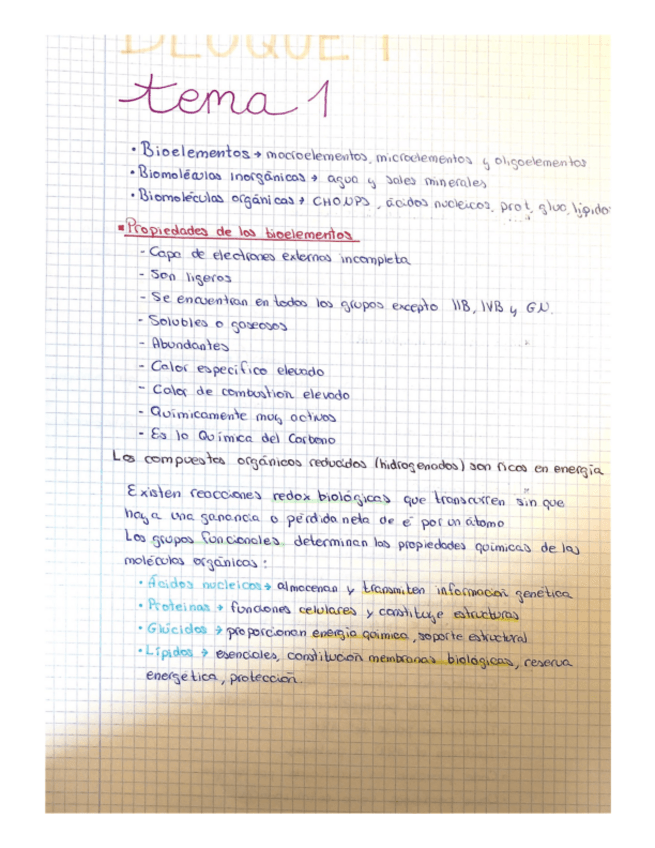 BLOQUE 1
tema 1
• Bioelementos → macroelementos, microelementos y oligoelementos
• Biomoléculas inorgánicas → agua y sales minerales
• Biomoléculas orgánicas → CHONPS, ácidos nucleicos, prot, gluc, lípido
▪ Propiedades de los bioelementos
- Capa de electrones externos incompleta
- Son ligeros
- Se encuentran en todos los grupos excepto IIB, IVB y G.N.
- Solubles o gaseosos
- Abundantes
- Calor especifico elevado
- Calor de combustion elevado
- Químicamente muy activos
- Es la Química del Carbono
Los compuestos orgánicos reducidos (hidrogenados) son ricos en energía
Existen reacciones redox biológicas que transcurren sin que
haya una ganancia o pérdida neta de e⁻ por un átomo
Los grupos funcionales determinan las propiedades químicas de las
moléculas orgánicas:
• Ácidos nucleicos → almacenan y transmiten información genética
• Proteínas → funciones celulares y constituye estructuras
• Glúcidos → proporcionan energía química, soporte estructural
• Lípidos → esenciales, constitución membranas biológicas, reserva
energética, protección.